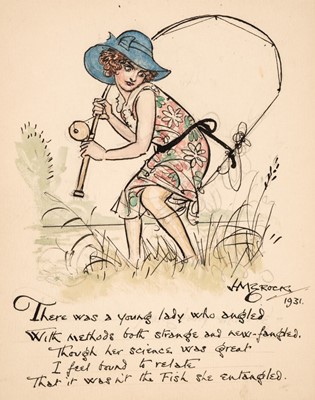 HMBrock
1931.
There was a young lady who angled
With methods both strange and new-fangled.
Though her science was great
I feel bound to relate
That it wasn't the Fish she entangled.